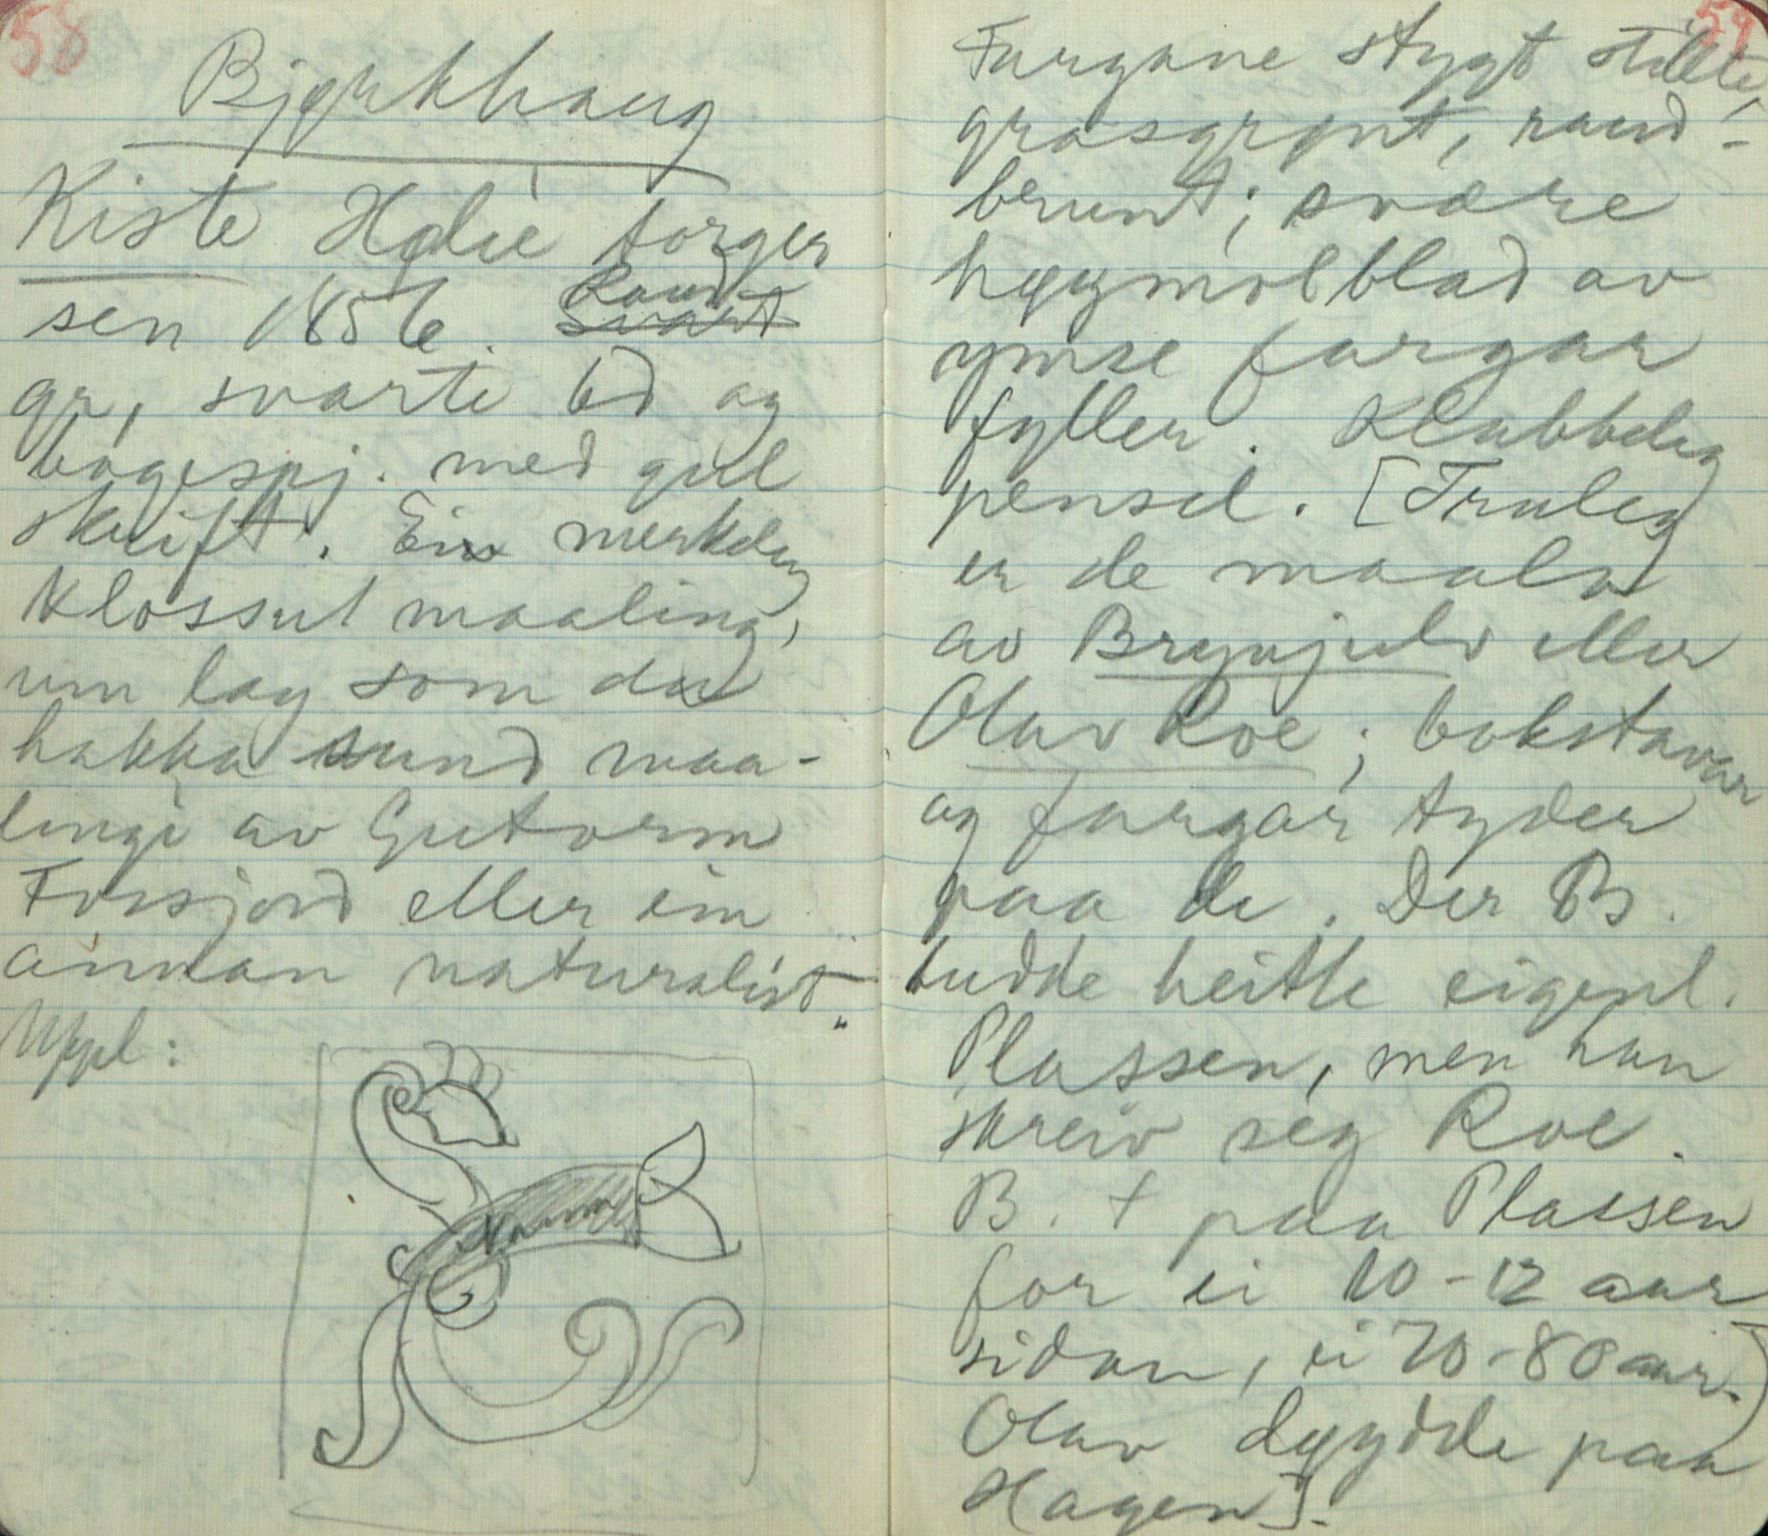 58
Bjørkhaug
Kiste Hølie Torger
sen 1856. Raud
svart
gr, svarte bd ag
bogespj. med gul
skrift. Ein merkeleg
klossut maaling,
um lag som du
hakka sund maa-
lingi av Gutorm
Fossjord eller ein
annan naturalist.
Uppl:
59
Fargane stygt stillte,
grasgrønt, raud-
brunt; svære
høymolblad av
ymse fargar
fyller. Klabbeleg
pensel. [Truleg
er de maala
av Brynjulv eller
Olav Roe; bokstavar
ag fargar tyder
paa de. Der B.
budde heitte eigenl.
Plassen, men han
skreiv seg Roe.
B. + paa Plassen
for ei 10-12 aar
sidan, ei 70-80 aar.)
Olav døydde paa
Hagen].